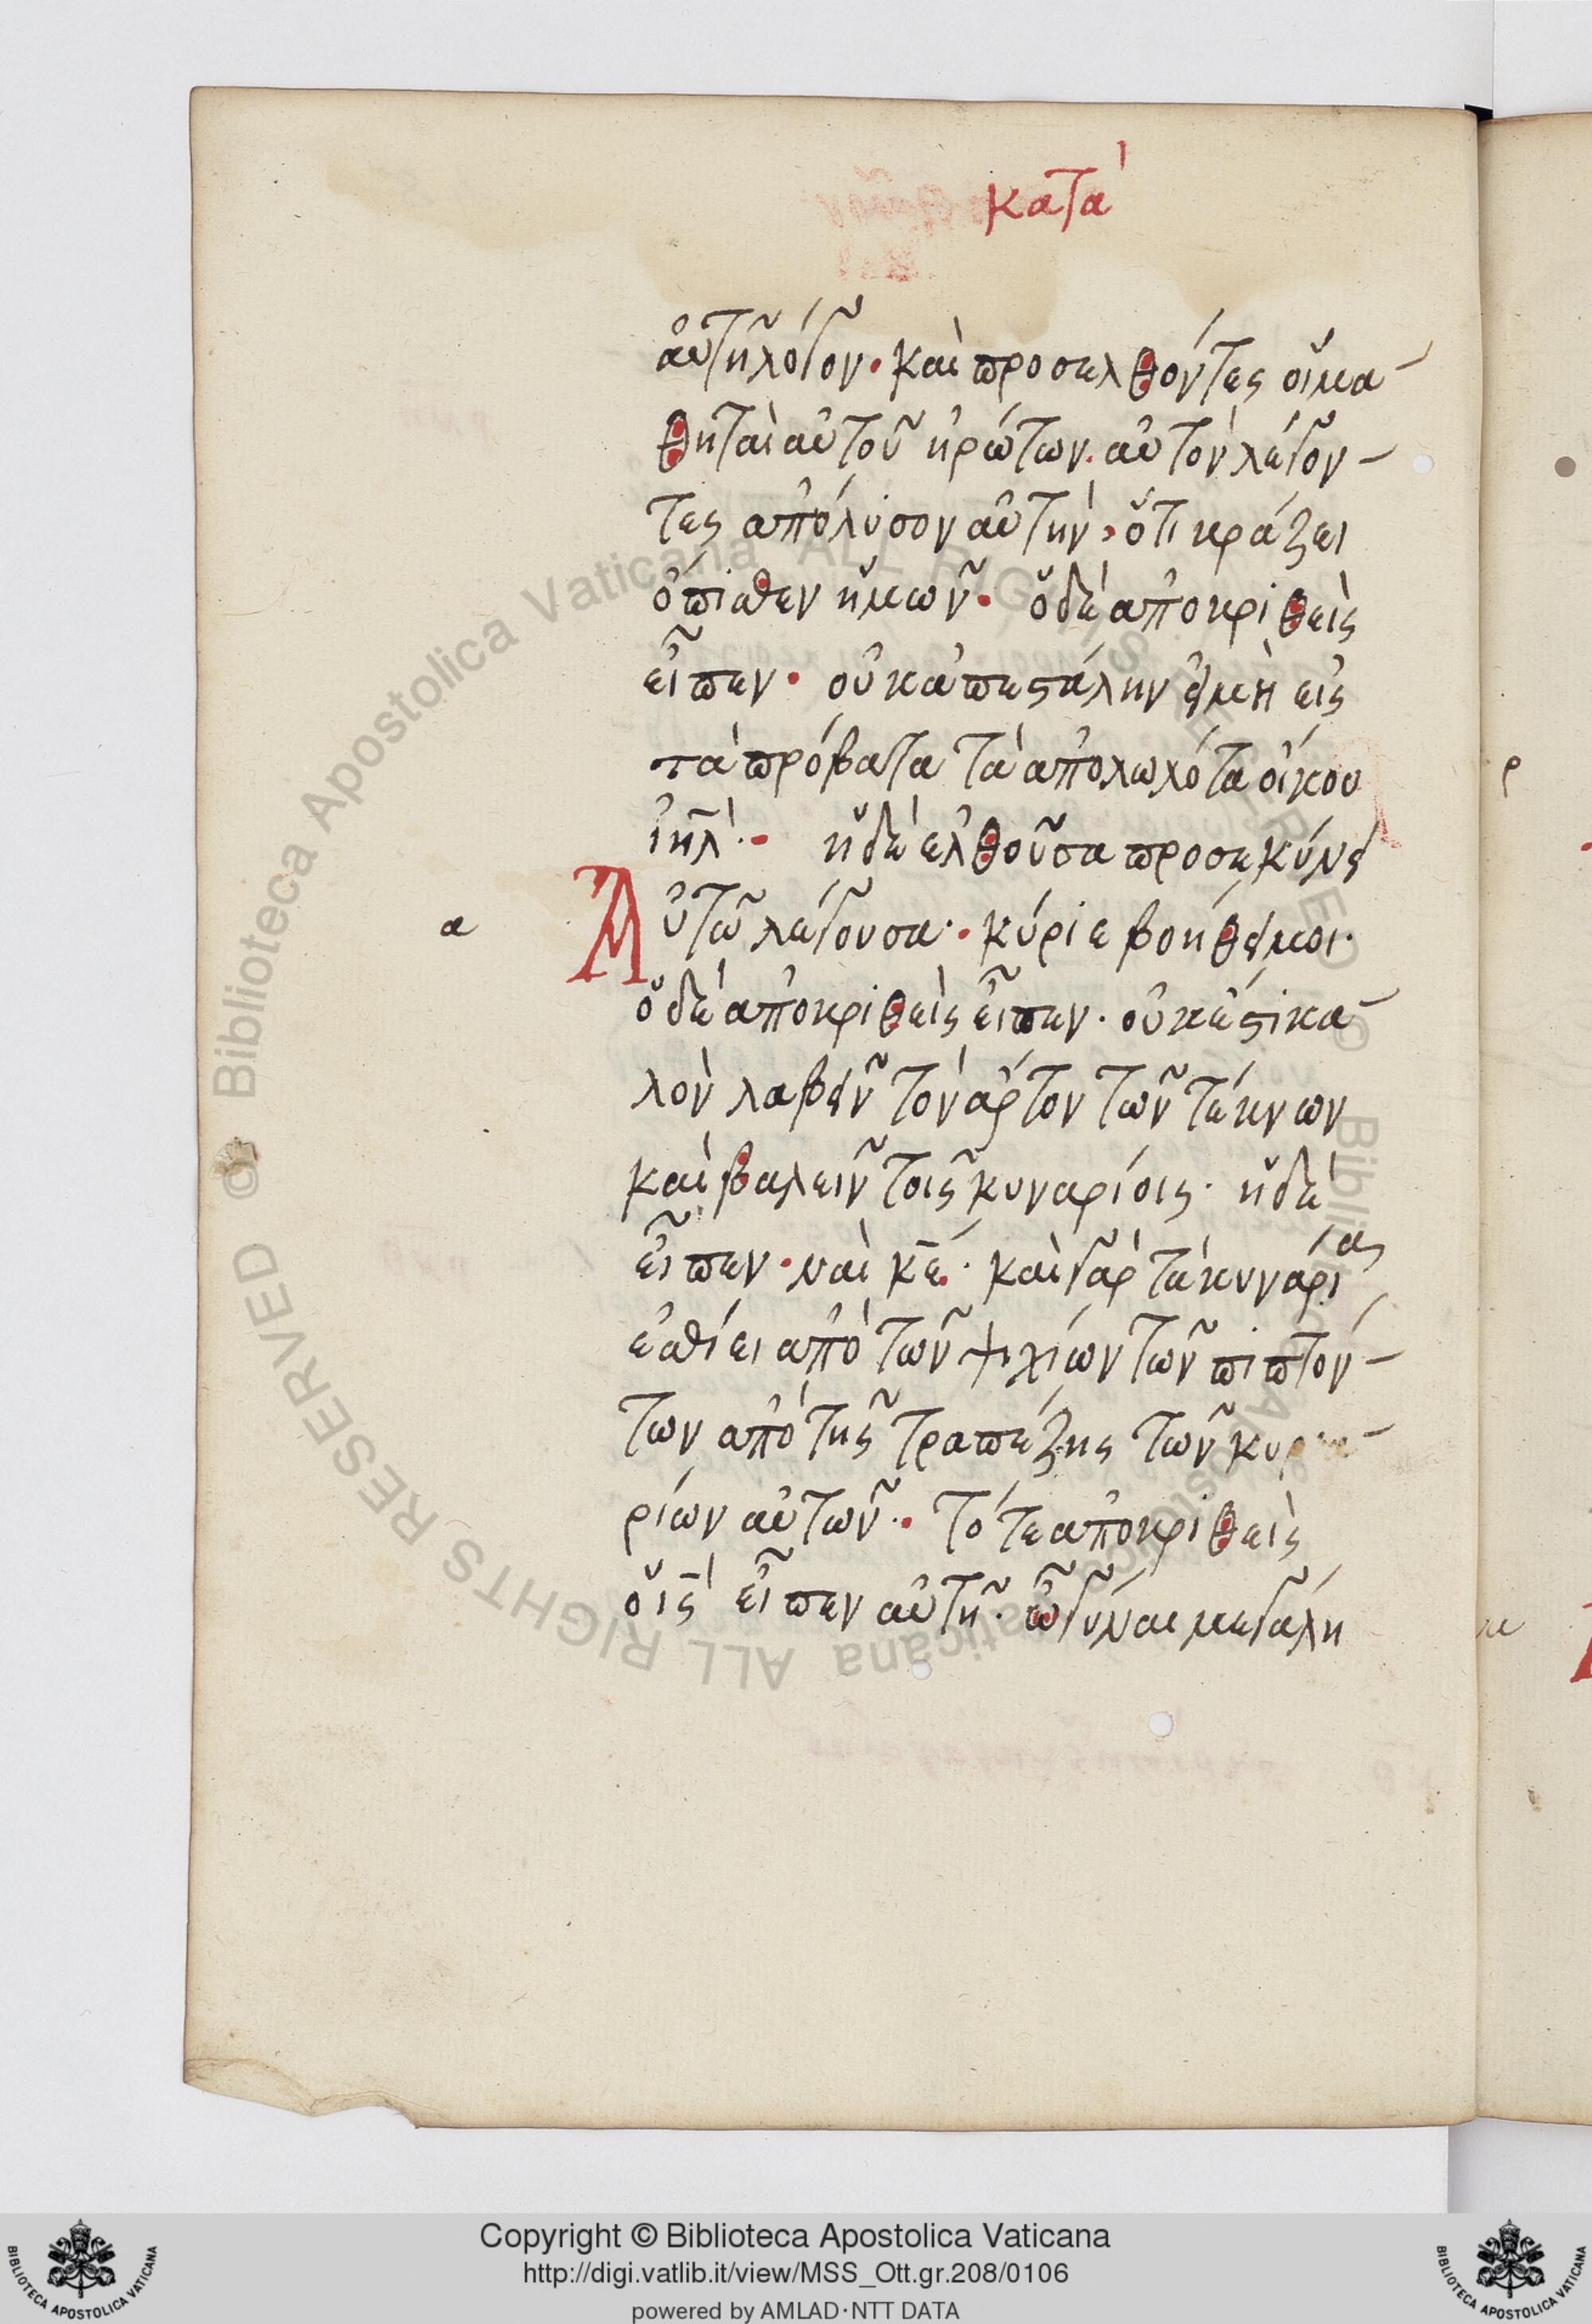 κατὰ
αὐτῆ λόγον· καὶ προσελθόντες οἱ μα-
θηταὶ αὐτοῦ ἠρώτων· αὐτὸν λέγον-
τες ἀπόλυσον αὐτήν, ὅτι κράζει
ὄπισθεν ἡμῶν· ὁ δὲ ἀποκριθεὶς
εἶπεν· οὐκ ἀπεστάλην εἰ μὴ εἰς
τὰ πρόβατα τὰ ἀπολωλότα οἴκου
ἰηλ· ἡ δὲ ἐλθοῦσα προσεκύνει
Αὐτῶ λέγουσα· κύριε βοήθει μοι·
α
ὁ δὲ ἀποκριθεὶς εἶπεν· οὐκ ἔστι κα-
λὸν λαβεῖν τὸν ἄρτον τῶν τέκνων
καὶ βαλεῖν τοῖς κυναρίοις· ἡ δὲ
εἶπεν· ναὶ κε· καὶ γὰρ τὰ κυνάρια
ἐσθίει ἀπὸ τῶν ψιχίων τῶν πιπτόν-
των ἀπὸ τῆς τραπέζης τῶν
ρίων αὐτῶν· τότε ἀποκριθεὶς
ὁ ις εἶπεν αὐτῆ· ὦ γύναι μεγάλη
Copyright © Biblioteca Apostolica Vaticana
http://digi.vatlib.it/view/MSS_Ott.gr.208/0106
powered by AMLAD·NTT DATA
BIBLIOTECA APOSTOLICA VATICANA
BIBLIOTECA APOSTOLICA VATICANA
© Biblioteca Apostolica Vaticana ALL RIGHTS RESERVED
© Biblioteca Apostolica Vaticana ALL RIGHTS RESERVED